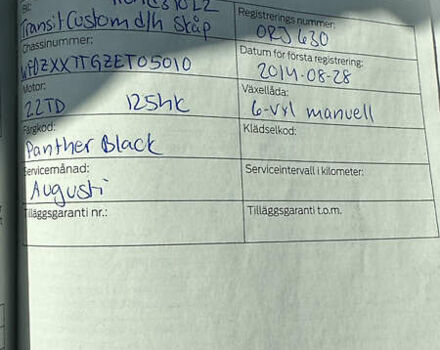 Bil:
Transit Custom d/h Skåp
Registrerings nummer:
ORJ 630
Chassinummer:
WF0ZXXTTGZET05010
Datum för första registrering:
2014-08-28
Motor:
2.2TD 125hk
Växellåda:
6-vxl manuell
Färgkod:
Panther Black
Klädselkod:
Servicemånad:
Augusti
Serviceintervall i kilometer:
Tilläggsgaranti nr.:
Tilläggsgaranti t.o.m.